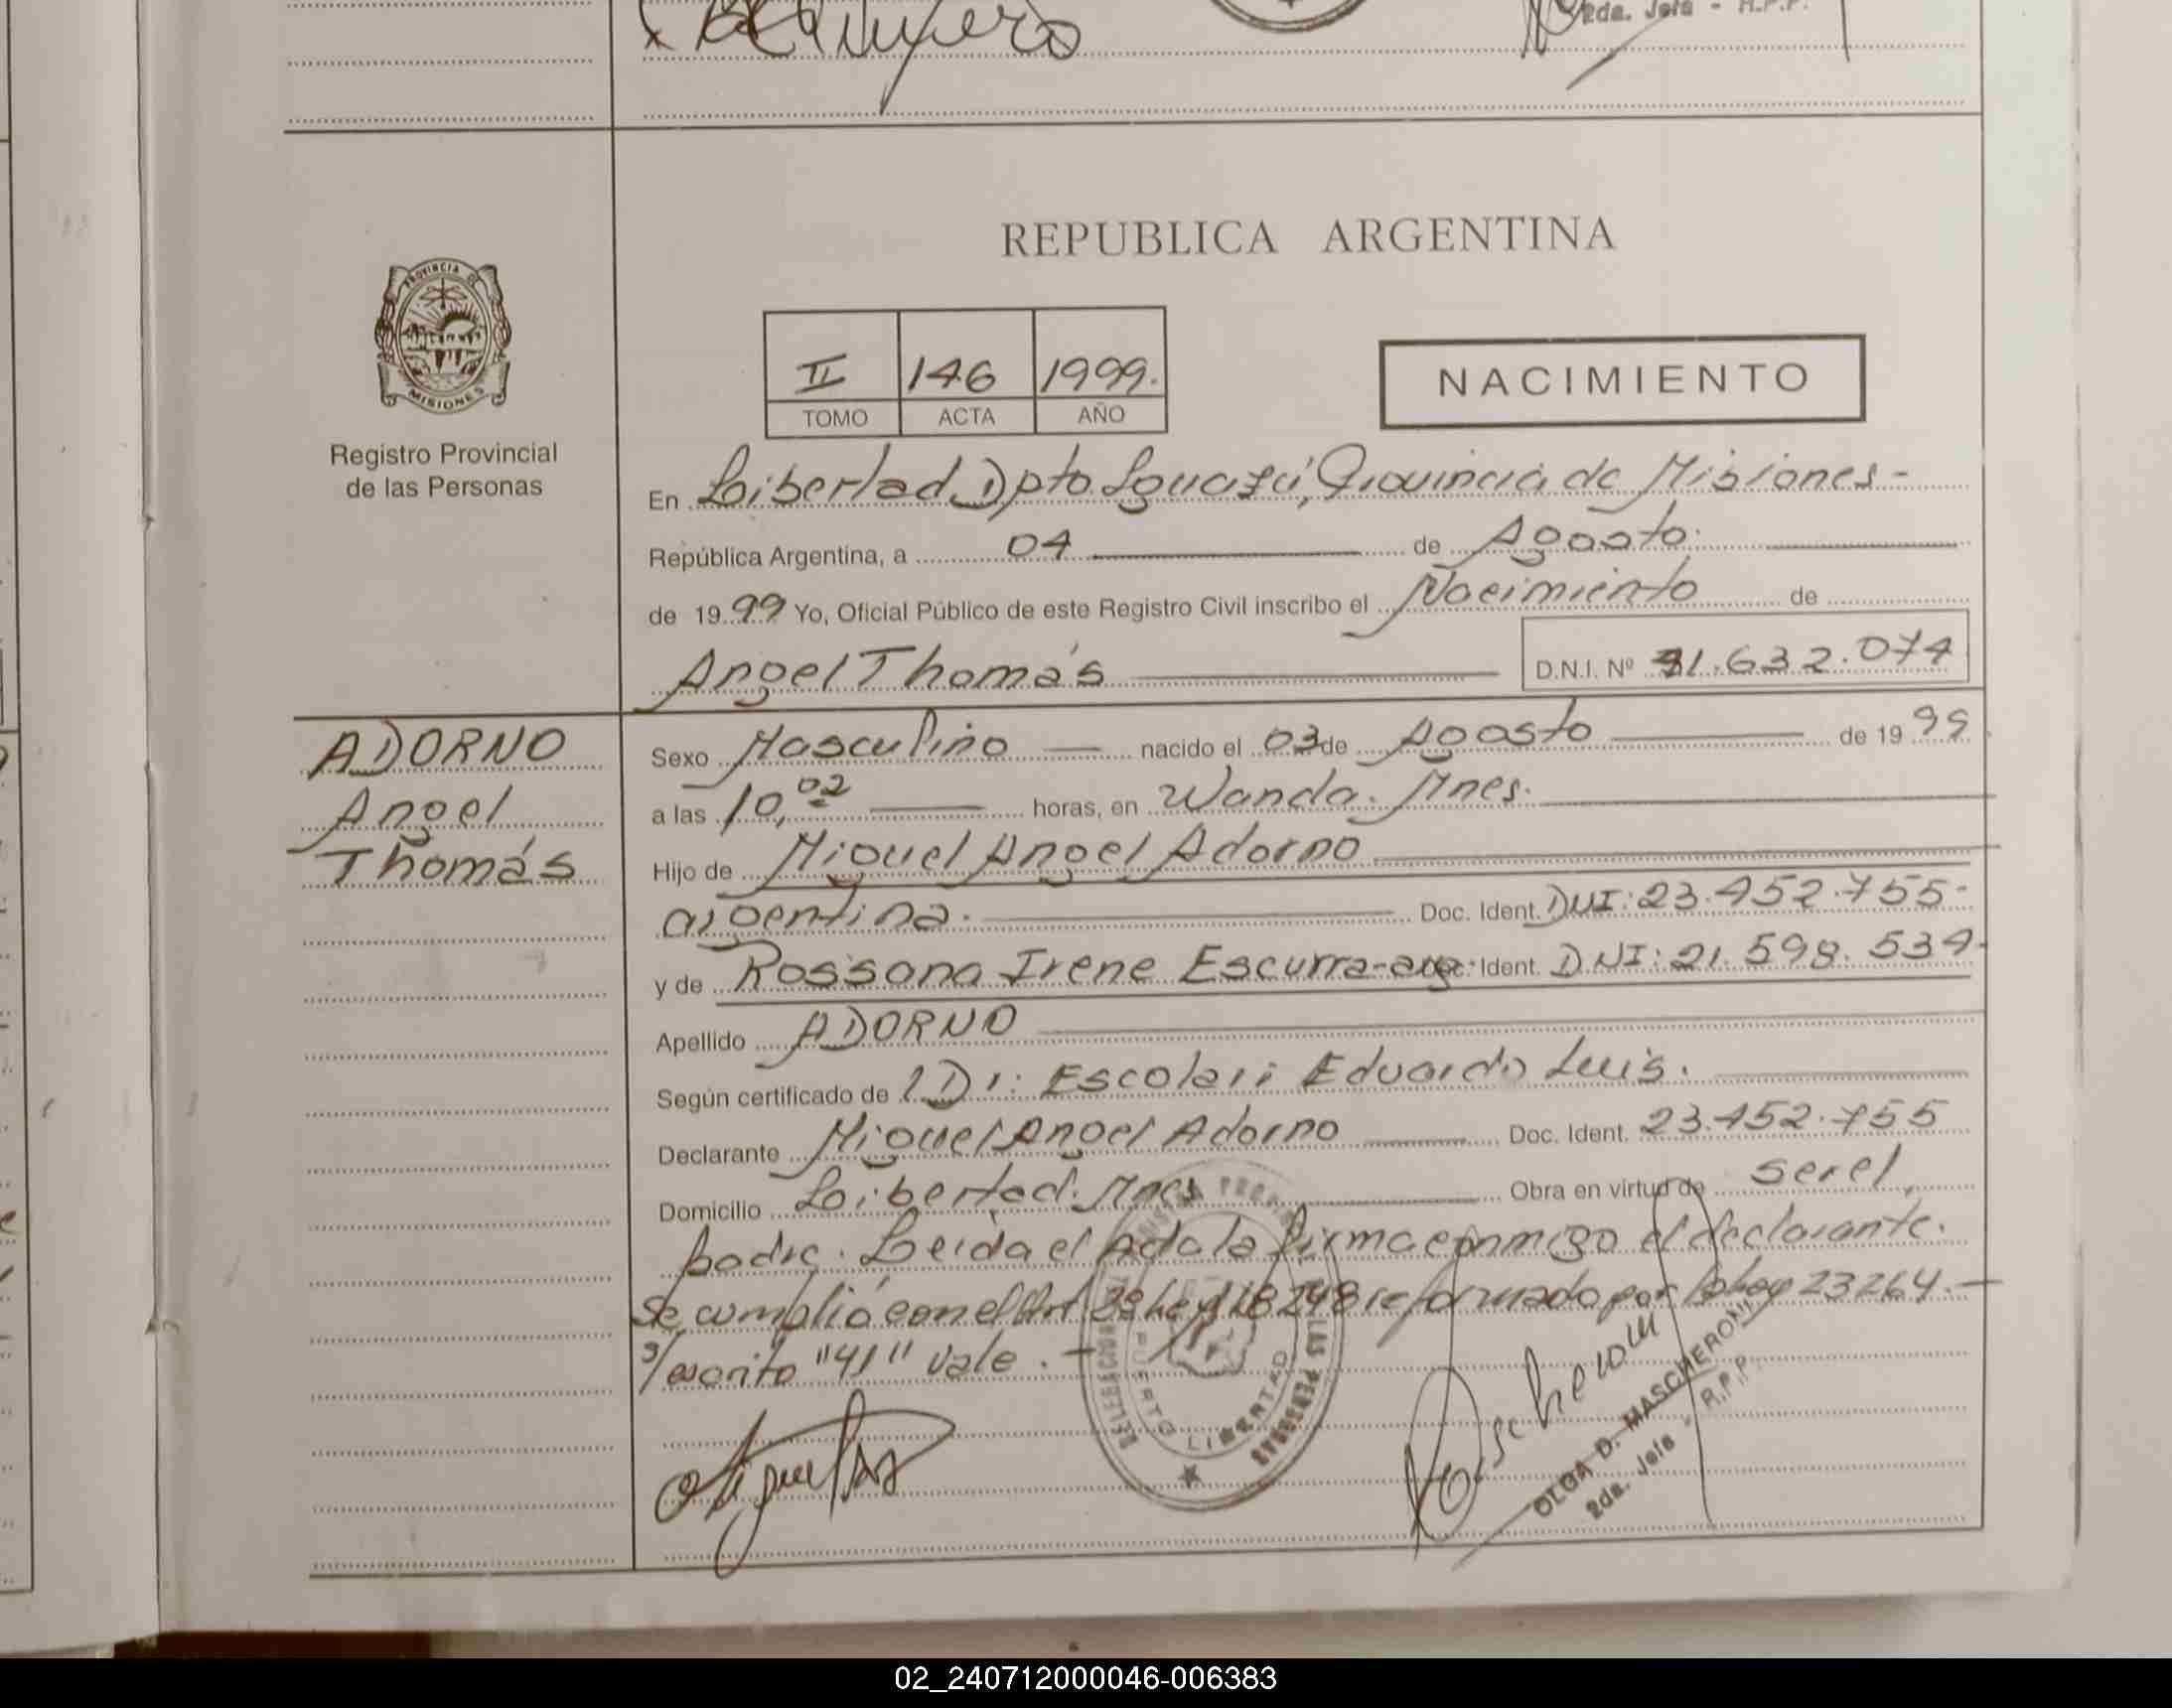 2da. Jefa - R.P.P.
REPUBLICA ARGENTINA
PROVINCIA DE
MISIONES
Registro Provincial
de las Personas
II 146 1999.
TOMO ACTA AÑO
NACIMIENTO
En Libertad, Dpto Iguazú, Provincia de Misiones -
República Argentina, a 04 de Agosto.
de 1999 Yo, Oficial Público de este Registro Civil inscribo el Nacimiento de
Angel Thomás D.N.I. Nº 41.632.074
ADORNO
Angel
Thomás
Sexo Masculino nacido el 03 de Agosto de 1999
a las 10,02 horas, en Wanda. Mnes.
Hijo de Miguel Angel Adorno
argentina. Doc. Ident. DNI: 23.452.755-
y de Rossana Irene Escurra-arg. Doc. Ident. DNI: 21.598.534-
Apellido ADORNO
Según certificado de Dr: Escolari Eduardo Luis.
Declarante Miguel Angel Adorno Doc. Ident. 23.452.755
Domicilio Libertad. Mnes Obra en virtud de ser el,
padre. Leida el Acta la firma conmigo el declarante.
Se cumplió con el Art. Ley 18248 reformado por la Ley 23264.-
s/escrito "41" vale.-
DELEGACION LAS PERSONAS
PUERTO LIBERTAD
OLGA D. MASCHERONI
2da. Jefa - R.P.P.
02_240712000046-006383